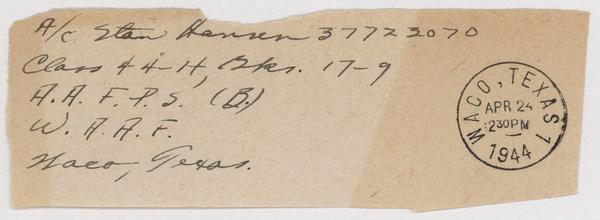 A/c Stan Hansen 37723070
Class 44-H, Bks. 17-9
A.A.F.P.S. (B.)
W.A.A.F.
Waco, Texas.
WACO, TEXAS 1
APR 24
230PM
1944